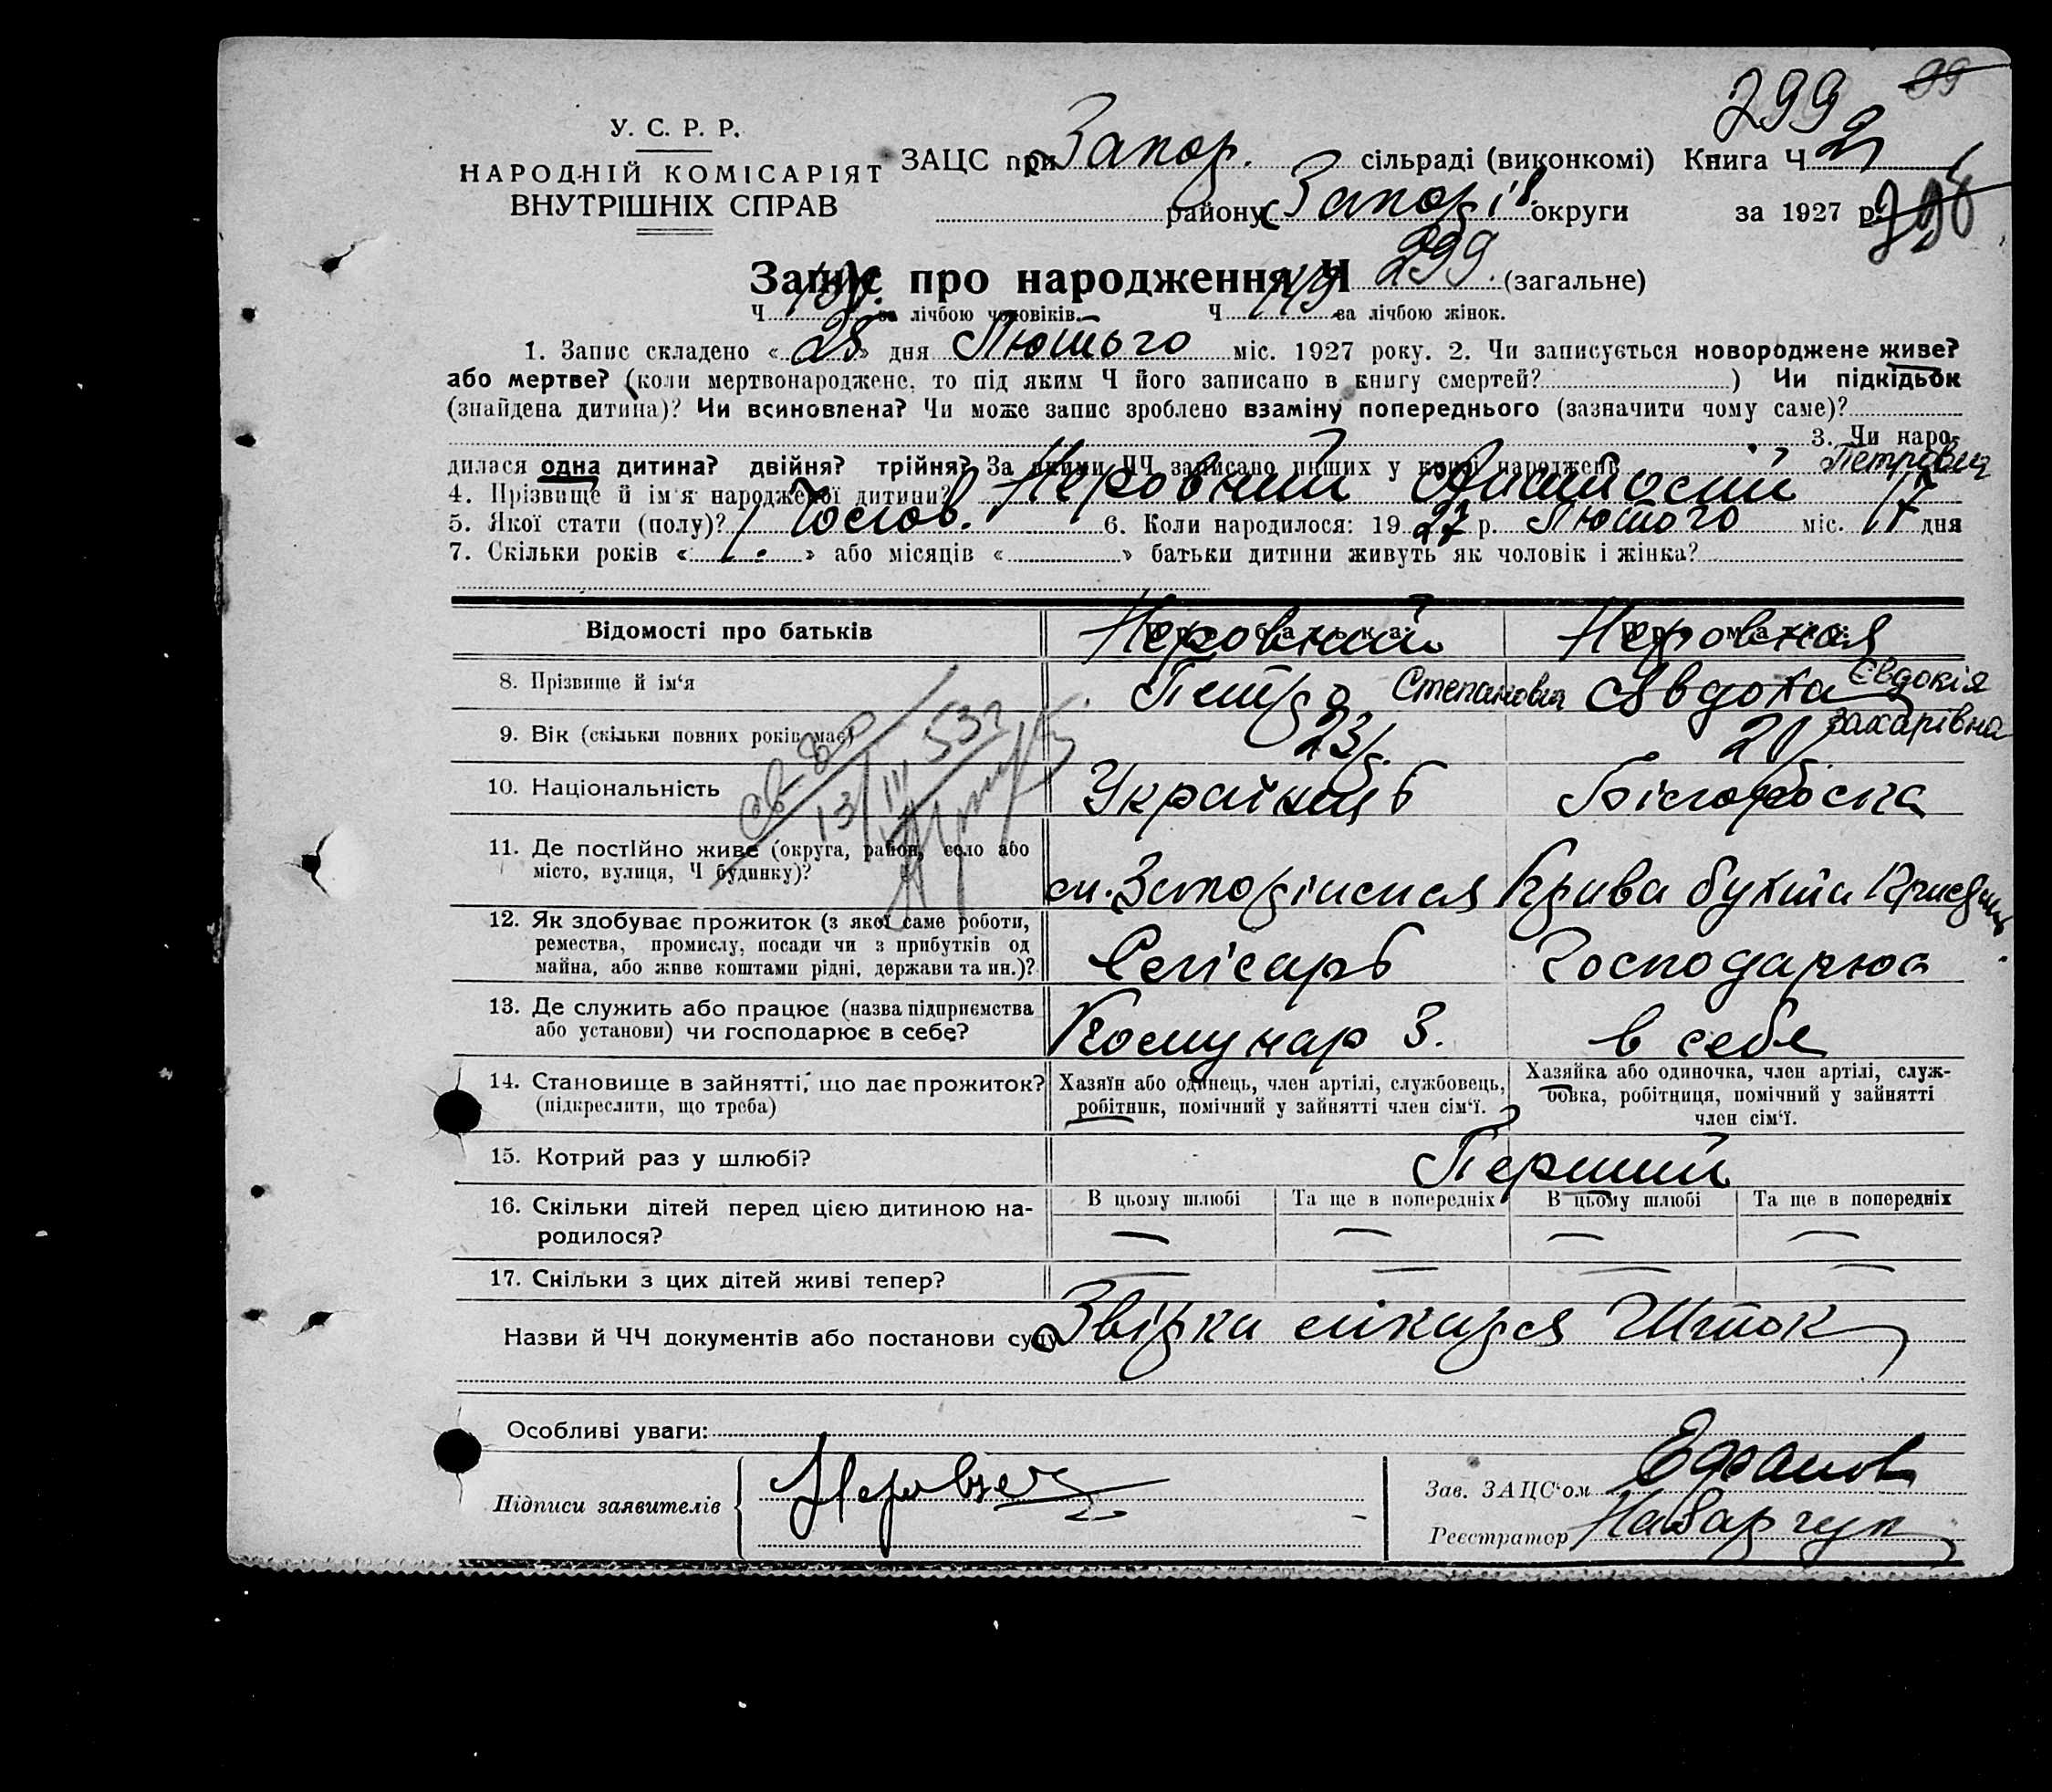 299 99
У. С. Р. Р.
НАРОДНІЙ КОМІСАРІЯТ
ВНУТРІШНІХ СПРАВ
ЗАЦС при Запор. сільраді (виконкомі) Книга Ч 2
району Запоріз округи за 1927 р. 298
Запис про народження Ч 299. (загальне)
Ч за лічбою чоловіків. Ч 119 за лічбою жінок.
1. Запис складено « 28 » дня Лютого міс. 1927 року. 2. Чи записується новороджене живе?
або мертве? (коли мертвонароджене, то під яким Ч його записано в книгу смертей? ) Чи підкідьок
(знайдена дитина)? Чи всиновлена? Чи може запис зроблено взаміну попереднього (зазначити чому саме)?
3. Чи наро-
дилася одна дитина? двійня? трійня? За якими ЧЧ записано инших у книзі народжень Петрович
4. Прізвище й ім'я народженої дитини? Неровний
5. Якої стати (полу)? Чолов. 6. Коли народилося: 19 27 р. Лютого міс. 17 дня
7. Скільки років « 1. » або місяців « » батьки дитини живуть як чоловік і жінка?
Відомості про батьків Про батька: Неровний Про матір: Неровная
8. Прізвище й ім‘я Петро Степанович Явдоха Євдокія
Захарівна
9. Вік (скільки повних років має) 23 р. 21 р.
10. Національність Українець Білоруска
11. Де постійно живе (округа, район, село або
місто, вулиця, Ч будинку)?
Крива бухта
12. Як здобуває прожиток (з якої саме роботи,
ремества, промислу, посади чи з прибутків од
майна, або живе коштами рідні, держави та ин.)?
Слісарь Господарює
13. Де служить або працює (назва підприємства
або установи) чи господарює в себе?
Комунар З. в себе
14. Становище в зайнятті, що дає прожиток?
(підкреслити, що треба)
Хазяїн або одинець, член артілі, службовець,
робітник, помічний у зайнятті член сім‘ї.
Хазяйка або одиночка, член артілі, служ-
бовка, робітниця, помічний у зайнятті
член сім‘ї.
15. Котрий раз у шлюбі? Перший
16. Скільки дітей перед цією дитиною на-
родилося?
В цьому шлюбі Та ще в попередніх В цьому шлюбі Та ще в попередніх
— — — —
17. Скільки з цих дітей живі тепер? — — — —
Назви й ЧЧ документів або постанови суду Звірка лікаря Шток
Особливі уваги:
Підписи заявителів
Зав. ЗАЦС‘ом
Реєстратор Назарчук